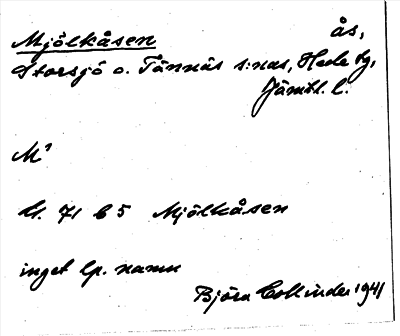 Mjölkåsen ås,
Storsjö o. Tännäs s:nar, Hede tg,
Jämtl. l.
M¹
K. 71 b 5 Mjölkåsen
inget lp. namn
Björn Collinder 1941